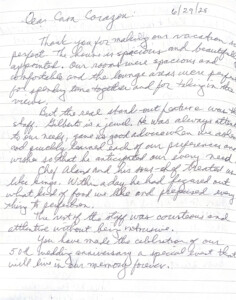 Dear Casa Corazon: 6/29/28
Thank you for making our vacation so
perfect. The house is spacious and beautifully
appointed. Our rooms were spacious and
comfortable and the lounge areas were perfect
for spending time together and for taking in the
views.
But the real stand-out feature was the
staff. Gilbert is a jewel. He was always attentive
to our needs, gave us good advice when we asked
and quickly learned each of our preferences and
wishes so that he anticipated our every need.
Chef Alans and his treated us
like kings. Within a day he had figured out
what kind of food we like and prepared every
thing to perfection.
The rest of the staff was courteous and
attentive without being intrusive.
You have made the celebration of our
50th wedding anniversary a special event that
will live in our memory forever.